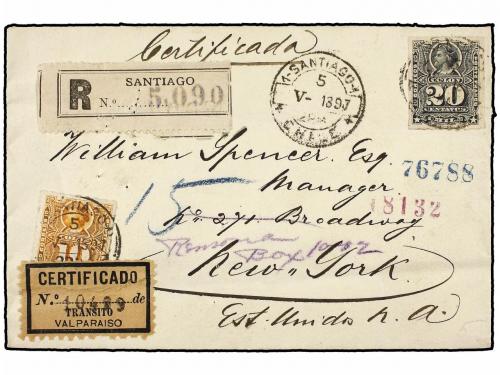 Certificada
R SANTIAGO
N.º 5,090
SANTIAGO
5
V- 1897
CHILE
COLON
20
CENTAVOS
CHILE
William Spencer, Esq
Manager
76788
18132
15
Nº 271 Broadway
Box
New-York
Est. Unidos n. A.
5
CERTIFICADO
N.º 10489 de
TRÁNSITO
VALPARAISO